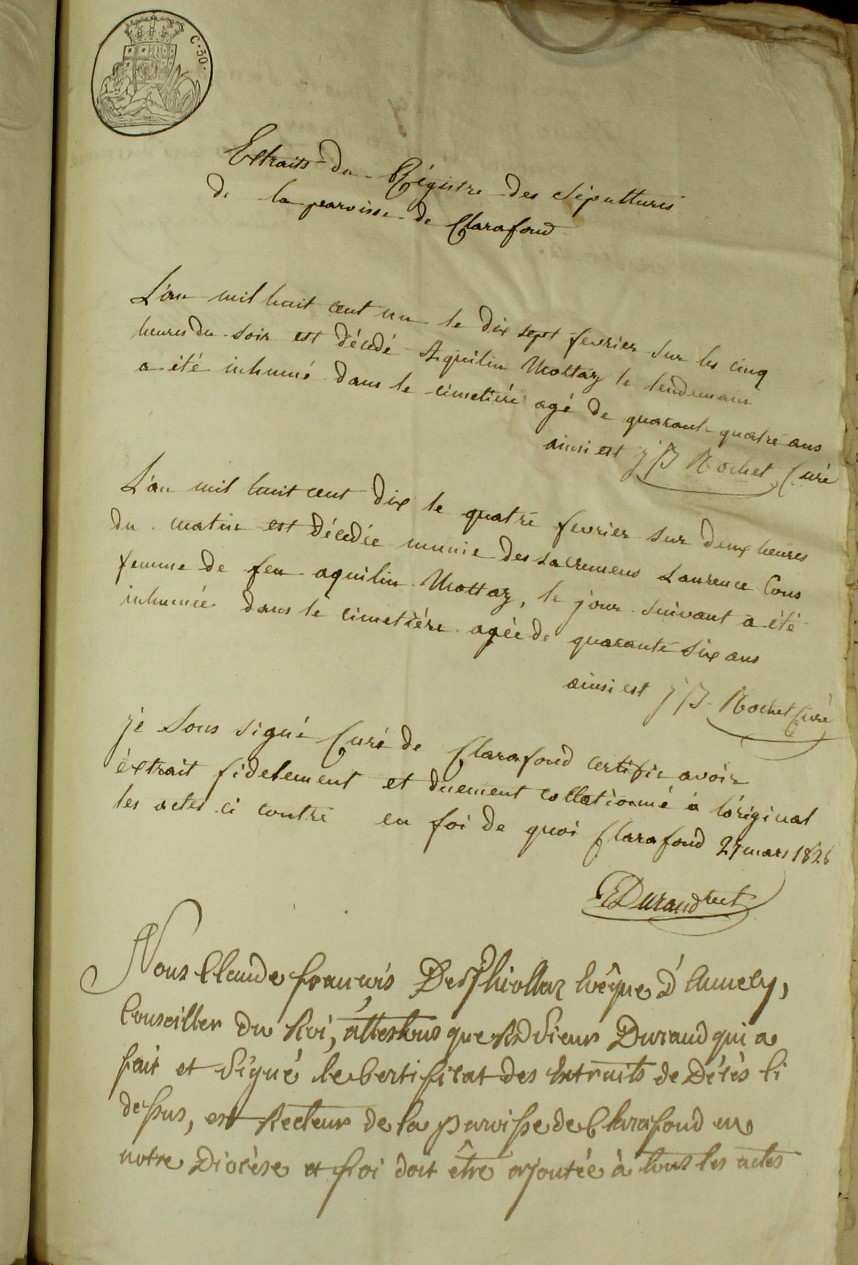 C. 50.
Extraits du Régistre des sépultures
de la parroisse de Clarafond
L'an mil huit cent un le dix sept fevrier sur les cinq
heures du soir est décédé Aquilin Mottaz le lendemain
a été inhumé dans le cimetiére agé de quarante quatre ans
ainsi est J B Rochet Curé
L'an mil huit cent dix le quatre fevrier sur deux heures
du matin est décedée munie des sacremens Laurence Cons
femme de feu aquilin Mottaz, le jour suivant a été
inhumée dans le cimetiére agée de quarante six ans
ainsi est J B Rochet Curé
je sous signé Curé de Clarafond certifie avoir
extrait fidelement et duement collationné à l'original
les actes ci contre en foi de quoi Clarafond 27 mars 1826
Durand rect
Nous Claude françois De Thiollaz Evêque d'Annecy,
Conseiller du Roi, attestons que Rd Sieur Durand qui a
fait et signé le Certificat des Extraits de Décès ci
dessus, est Recteur de la paroisse de Clarafond en
notre Diocèse et foi doit être ajoutée à tous les actes